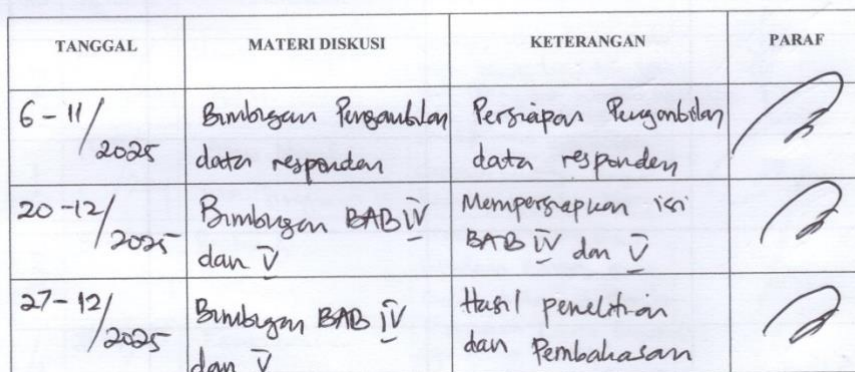 TANGGAL MATERI DISKUSI KETERANGAN PARAF
6-11/2025 Bimbingan Pengambilan Persiapan Pengambilan
data responden data responden
20-12/2025 Bimbingan BAB IV Mempersiapkan isi
dan V BAB IV dan V
27-12/2025 Bimbingan BAB IV Hasil penelitian
dan V dan Pembahasan